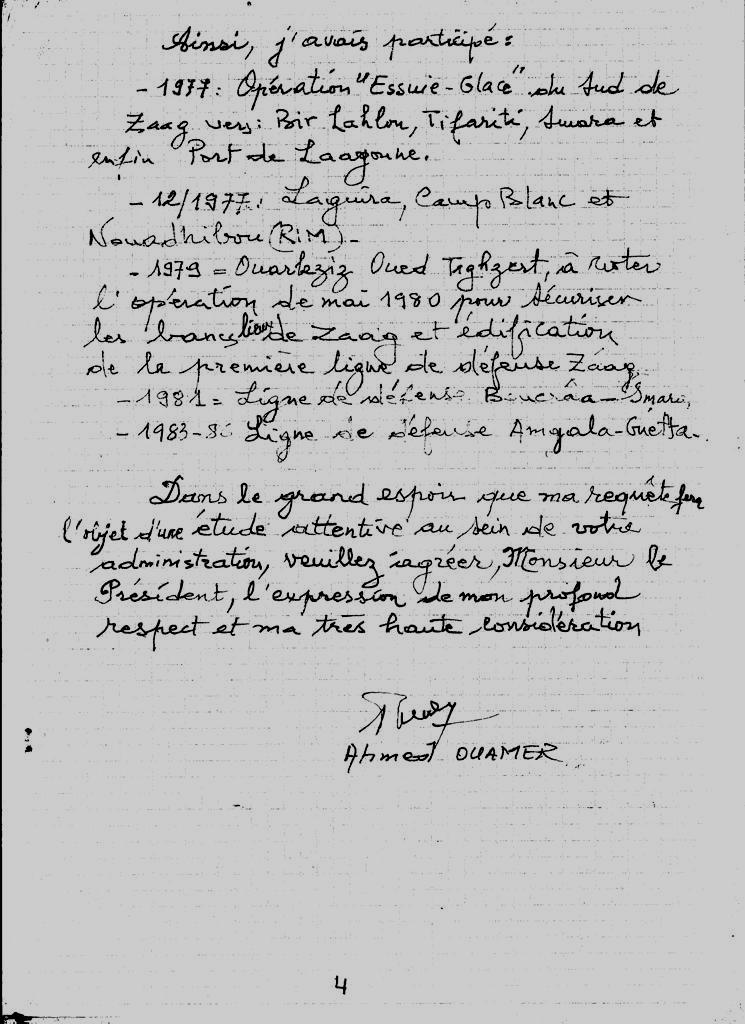 Ainsi, j'avais participé :
- 1977 : Opération "Essuie-Glace" du Sud de
Zaag vers : Bir Lahlou, Tifariti, Smara et
enfin Port de Laagoune.
- 12/1977 : Laguira, Camp Blanc et
Nouadhibou (RIM) -
- 1979 = Ouarkziz Oued Tighzert, à noter
l'opération de mai 1980 pour sécuriser
les banslieux de Zaag et édification
de la première ligne de défense Zaag
- 1981 = Ligne de défense Boucrâa - Smara,
- 1983- Ligne de défense Amgala-Guelta -
Dans le grand espoir que ma requête fera
l'objet d'une étude attentive au sein de votre
administration, veuillez agréer, Monsieur le
Président, l'expression de mon profond
respect et ma très haute considération
Ahmed OUAMER
4